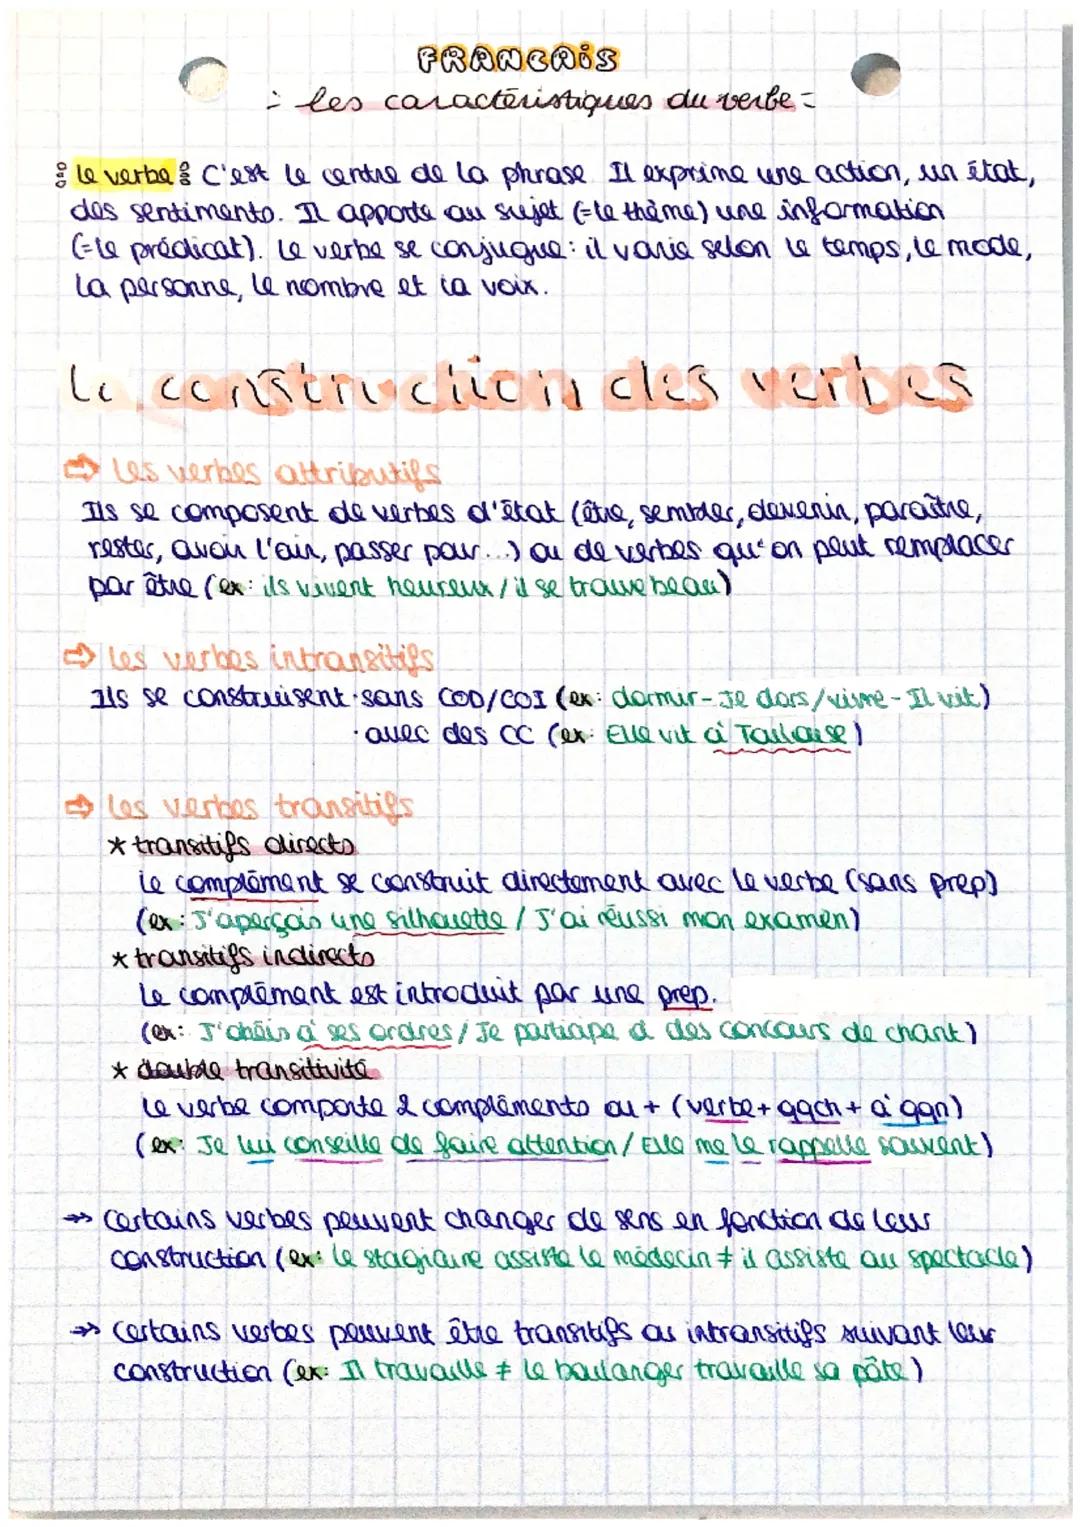 FRANCAIS
- les caractéristiques du verbe -
le verbe : C'est le centre de la phrase. Il exprime une action, un état,
des sentiments. Il apporte au sujet (=le thème) une information
(=le prédicat). Le verbe se conjugue : il varie selon le temps, le mode,
la personne, le nombre et la voix.
La construction des verbes
⇨ Les verbes attributifs
Ils se composent de verbes d'état (être, sembler, devenir, paraître,
rester, avoir l'air, passer pour...) ou de verbes qu'on peut remplacer
par être (ex : ils vivent heureux / il se trouve beau)
⇨ Les verbes intransitifs
Ils se construisent · sans COD/COI (ex : dormir - Je dors / vivre - Il vit)
· avec des CC (ex : Elle vit à Toulouse)
⇨ Les verbes transitifs
* transitifs directs
Le complément se construit directement avec le verbe (sans prep)
(ex : J'aperçois une silhouette / J'ai réussi mon examen)
* transitifs indirects
Le complément est introduit par une prep.
(ex : J'obéis à ses ordres / Je participe à des concours de chant)
* double transitivité
Le verbe comporte 2 compléments ou + (verbe + qqch + à qqn)
(ex : Je lui conseille de faire attention / Elle me le rappelle souvent)
->> Certains verbes peuvent changer de sens en fonction de leur
construction (ex : Le stagiaire assiste le médecin ≠ il assiste au spectacle)
->> Certains verbes peuvent être transitifs ou intransitifs suivant leur
construction (ex : Il travaille ≠ Le boulanger travaille sa pâte)